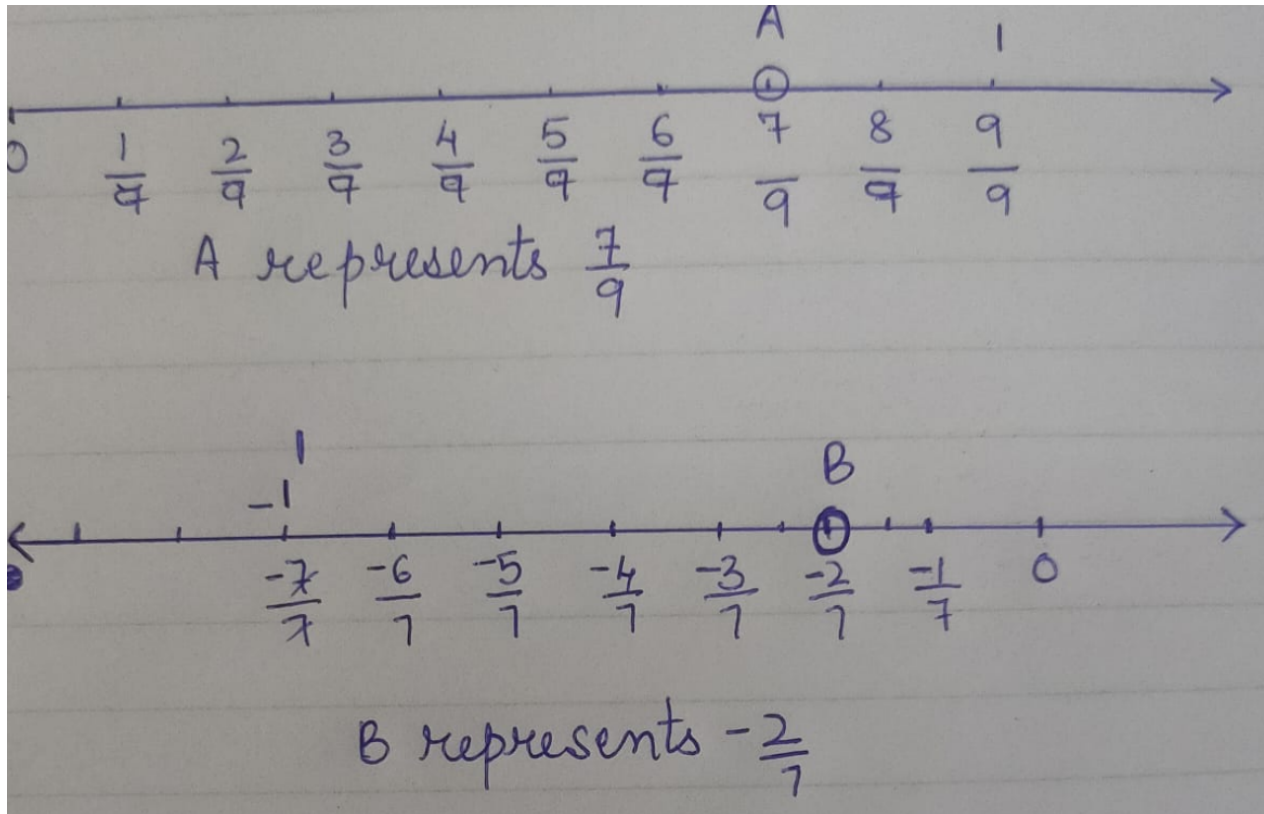 A
1
0 1/9 2/9 3/9 4/9 5/9 6/9 7/9 8/9 9/9
A represents 7/9
1
-1
B
-7/7 -6/7 -5/7 -4/7 -3/7 -2/7 -1/7 0
B represents -2/7